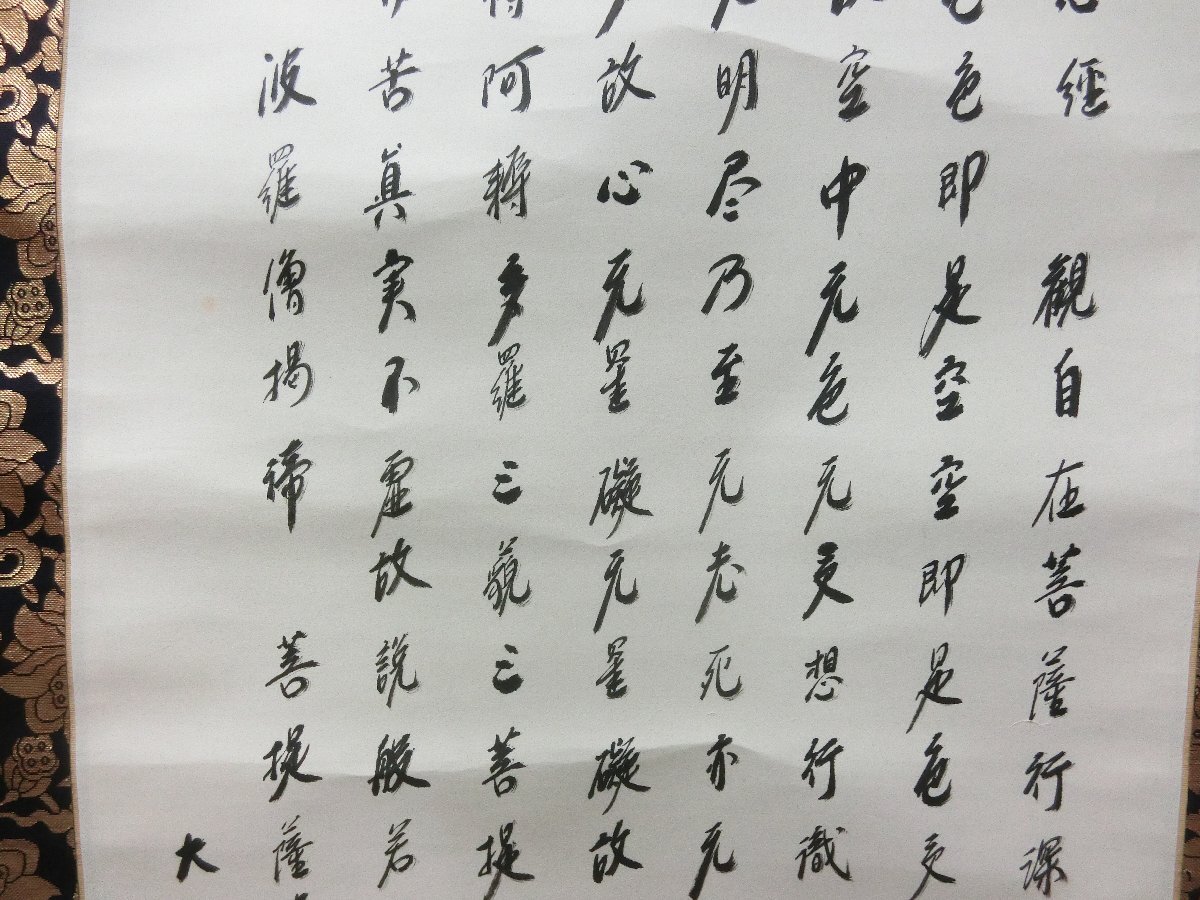 經 觀自在菩薩行深
色即是空空即是色受
空中无色无受想行識
明尽乃至无老死亦无
故心无罣礙无罣礙故
阿耨多羅三藐三菩提
苦真実不虚故説般若
波羅僧揭諦 菩提薩
大